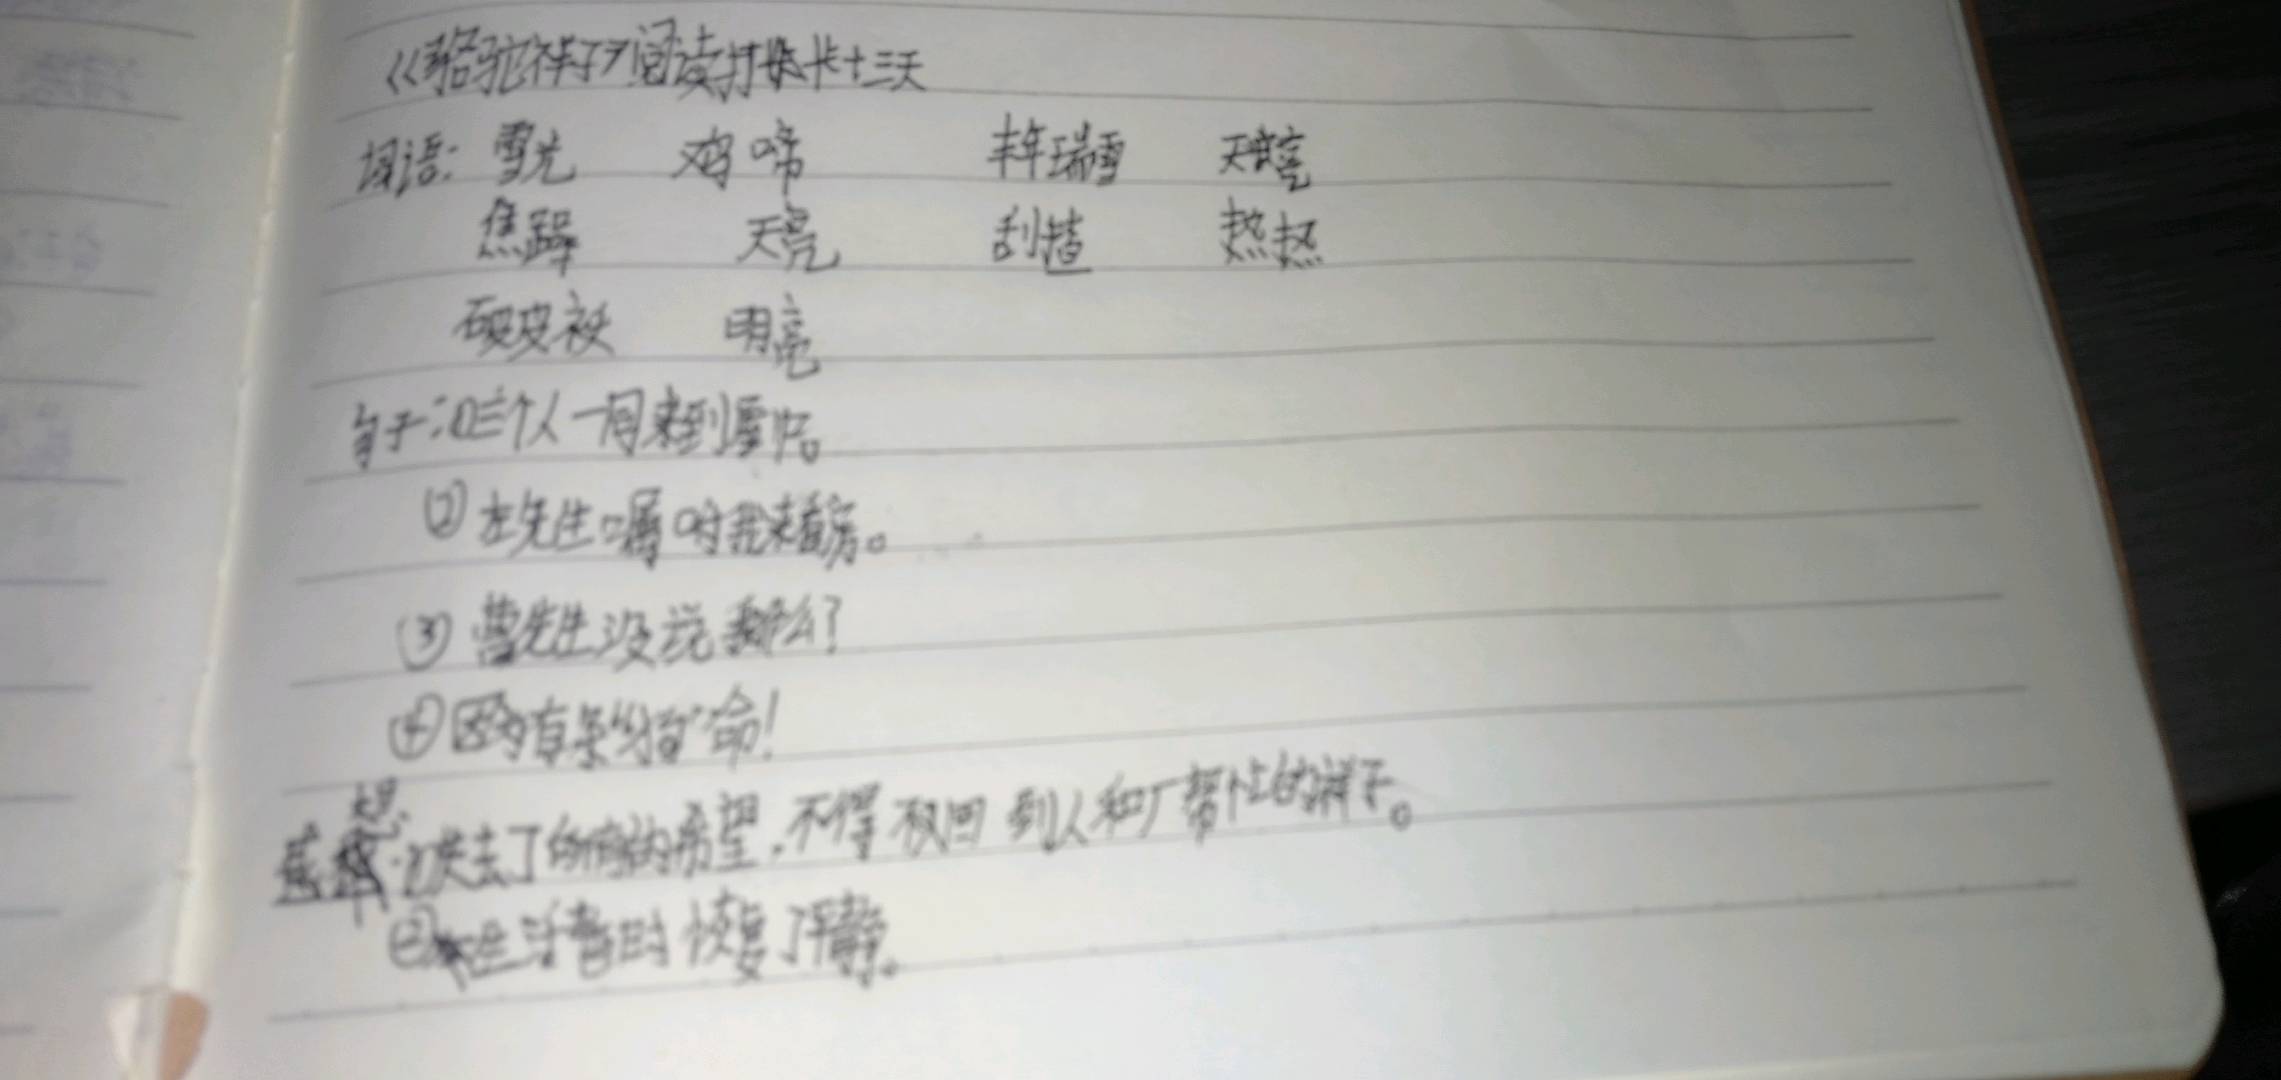 《骆驼祥子》阅读打卡十三天
词语：雪光 鸡啼 丰年瑞雪 天亮
焦躁 天亮 刮着 热热
破皮袄 明亮
句子：①三个人一同来到屋中。
②左先生嘱咐我来看房。
③曹先生没说我什么？
④因为有条狗命！
感想：①失去了所有的希望，不得不回到人和厂帮忙的祥子。
②生活暂时恢复了平静。